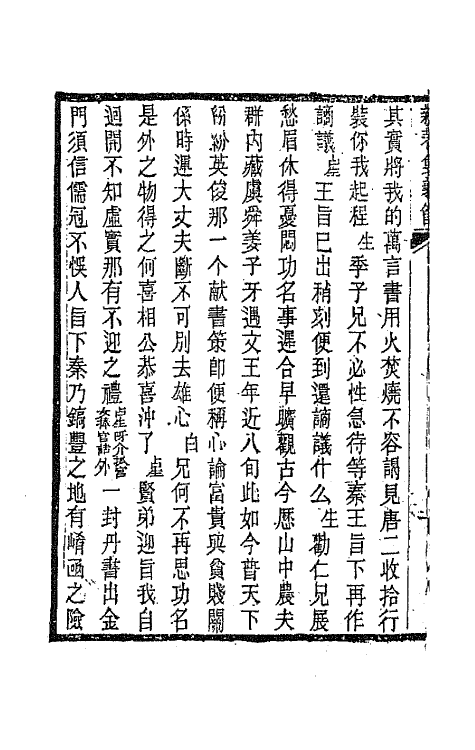 其實將我的萬言書用火焚燒不容謁見唐二收拾行
裝你我起程生季子兄不必性急待等秦王旨下再作
謫議産王旨已出稍刻便到還謫議什么生勸仁兄展
愁眉休得憂悶功名事遲合早曠觀古今歷山中農夫
群內藏虞舜姜子牙遇文王年近八旬此如今普天下
紛紛英俊那一个献書策卽便稱心論富貴與貧賤關
係時運大丈夫斷不可別去雄心白兄何不再思功名
是外之物得之何喜相公恭喜沖了産賢弟迎旨我自
迴開不知虛實那有不迎之禮
外一封丹書出金
門須信儒冠不悮人旨下秦乃鎬豐之地有崤凾之險